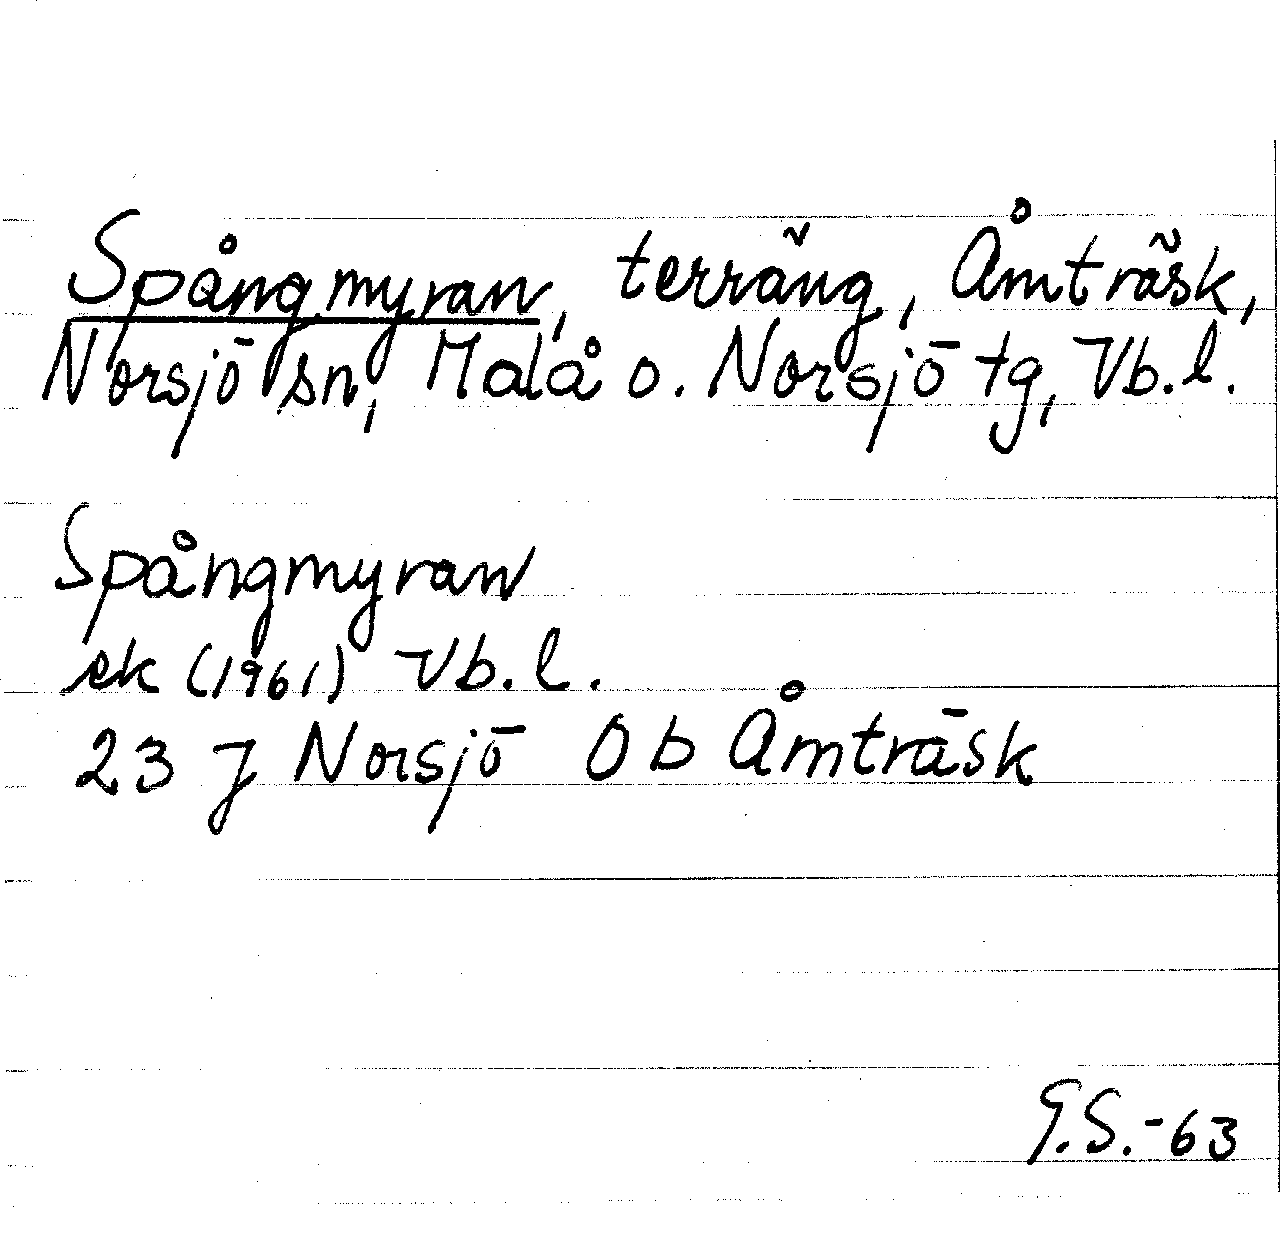 Spångmyran, terräng, Åmträsk,
Norsjö sn, Malå o. Norsjö tg, Vb.l.
Spångmyran
ek (1961) Vb.l.
23 J Norsjö 0 b Åmträsk
G.S.-63